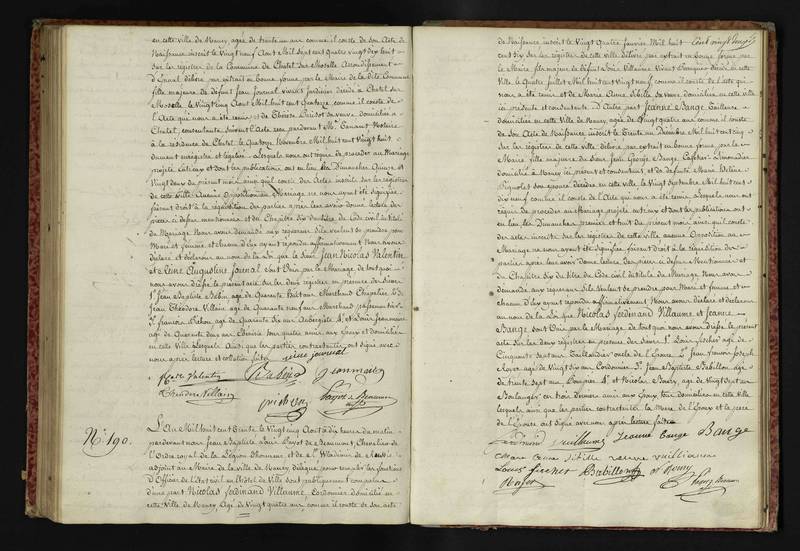 en cette ville de Nancy, agée de trente un ans comme il conste de son Acte de
Naissance inscrit le Vingt neuf Aout Mil Sept cent Quatre vingt dix huit
sur les registres de la Commune de Chatel sur Moselle Arrondissement
d'Epinal délivré par extrait en bonne forme, par le Maire de la dite Commune
fille majeure de défunt Jean Journal vivant Jardinier décédé à Chatel sur
Moselle le Vingt cinq Aout Mil huit cent Quatorze, comme il conste de
l'Acte qui nous a été remis et de Thérèse sa veuve domiciliée à
Chatel, consentante suivant l'Acte reçu pardevant Me Notaire
à la résidence de Chatel le Quatorze Novembre Mil huit cent Vingt huit
duement enregistré et légalisé. Lesquels nous ont requis de procéder au Mariage
projeté entr'eux et dont les publications ont eu lieu les Dimanches Quinze et
Vingt deux du présent mois, ainsi qu'il conste des Actes inscrits sur les registres
de cette ville. Aucune opposition au Mariage ne nous ayant été signifiée
faisant droit à la réquisition des parties après leur avoir donné lecture des
pièces ci dessus mentionnées et du Chapitre Six du titre du Code civil intitulé
du Mariage Nous avons demandé aux requérans s'ils veulent se prendre pour
Mari et femme, et chacun d'eux ayant répondu affirmativement Nous avons
déclaré et déclarons au nom de la loi que le Sieur Jean Nicolas Valentin
et Reine Augustine Journal sont Unis par le Mariage de tout quoi
nous avons dressé le présent acte sur les deux registres en présence des Sieurs
1° Jean Baptiste agé de Quarante huit ans Marchand Chapelier 2°
Jean Théodore Villain agé de Quarante neuf ans Marchand
3° François agé de Quarante Six ans Aubergiste 4° et Louis Jeanmaire
agé de Quarante deux ans tous quatre amis aux Epoux et domiciliés
en cette Ville Lesquels Ainsi que les parties contractantes ont signé avec
nous après lecture et collation faite
reine journal
Valentin
Jeanmaire
Théodore Villain
Payot de Beaumont
N° 190.
L'an Mil huit cent Trente le Vingt cinq Aout à dix heures du matin
pardevant nous Jean Baptiste Louis Payot de Beaumont Chevalier de
l'Ordre royal de la Légion d'honneur et de St Wladimir de Russie
adjoint au Maire de la ville de Nancy délégué pour remplir les fonctions
d'Officier de l'état civil en l'Hotel de Ville sont publiquement comparus
d'une part Nicolas Ferdinand Villaume, Cordonnier domicilié en
cette Ville de Nancy, Agé de Vingt quatre ans comme il conste de son acte
Cent vingt
de Naissance inscrit le Vingt Quatre février Mil huit
cent Six sur les registres de cette ville délivré par extrait en bonne forme par
le Maire fils majeur de défunt Villaume Vivant décédé en cette
Ville le Quatre Juillet Mil huit cent Vingt neuf comme il conste de l'acte qui
nous a été remis et de Marie Anne Sibille sa veuve domiciliée en cette ville
ici présente et consentante D'Autre part Jeanne Bange Tailleuse
domiciliée en cette Ville de Nancy, agée de Vingt quatre ans comme il conste
de son Acte de Naissance inscrit le Trente un Décembre Mil huit cent cinq
sur les registres de cette ville délivré par extrait en bonne forme par le
Maire fille majeure du Sieur George Bange Cafetier Limonadier
domicilié à Nancy ici présent et consentant et de défunte Marie Hélène
son épouse décédée en cette ville le Vingt Septembre Mil huit cent
dix neuf comme il conste de l'Acte qui nous a été remis Lesquels nous ont
requis de procéder au Mariage projeté entr'eux et dont les publications ont
eu lieu les Dimanches premier et huit du présent mois ainsi qu'il conste
des actes inscrits sur les registres de cette ville aucune Opposition au
Mariage ne nous ayant été signifiée faisant droit à la réquisition des
parties après leur avoir donné lecture des pièces ci dessus Mentionnées et
du Chapitre Six du titre du Code civil intitulé du Mariage Nous avons
demandé aux requérans s'ils veulent se prendre pour Mari et femme et
chacun d'Eux ayant répondu affirmativement Nous avons déclaré et déclarons
au nom de la Loi que Nicolas Ferdinand Villaume et Jeanne
Bange sont Unis par le Mariage de tout quoi nous avons dressé le présent
acte sur les deux registres en présence des Sieurs 1° Louis Fischer agé de
Cinquante Sept ans Taillandier oncle de l'Epouse 2° Jean François Joseph
agé de Vingt Six ans Cordonnier 3° Jean Baptiste Babillon agé
de trente Sept ans 4° et Nicolas agé de Vingt Sept ans
Boulanger ces trois derniers amis aux Epoux tous domiciliés en cette ville
lesquels ainsi que les parties contractantes la Mère de l'Epoux et le père
de l'Epouse ont signé avec nous après lecture faite
Ferdinand Vuillaume Jeanne Bange Bange
Marie Anne Sibille veuve Vuillaume
Louis Fischer Babillon
Payot de Beaumont